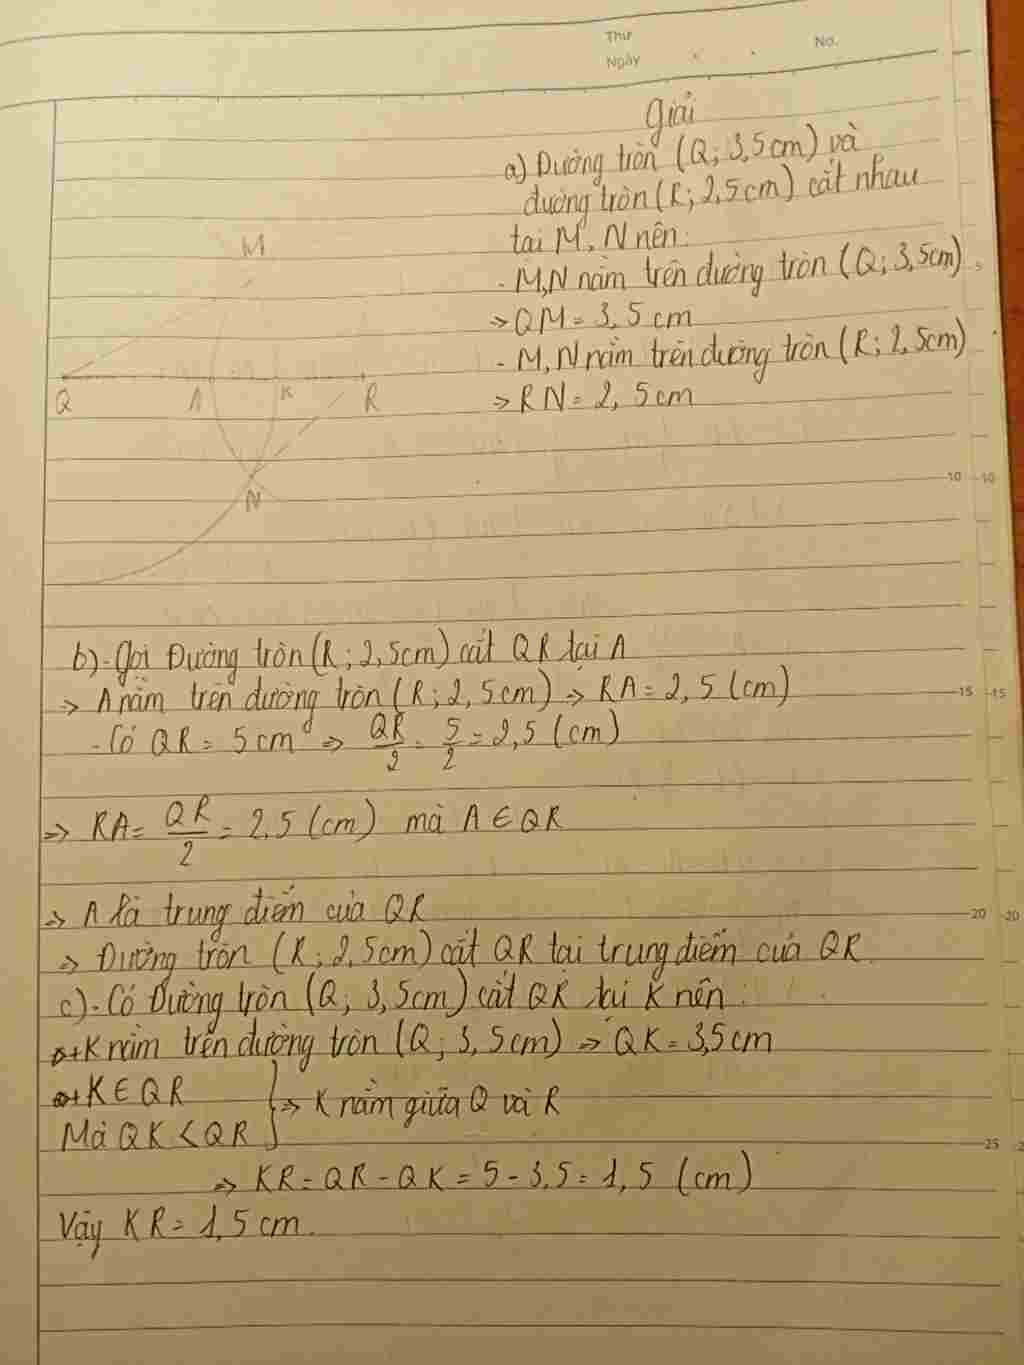 Thứ
Ngày
No.
Giải
a) Đường tròn (Q; 3,5cm) và
đường tròn (R; 2,5cm) cắt nhau
tại M, N nên:
- M,N nằm trên đường tròn (Q; 3,5cm).
=> QM = 3,5cm
- M, N nằm trên đường tròn (R; 2,5cm)
=> RN = 2,5cm
M
Q A K R
N
10 10
b) - Gọi Đường tròn (R; 2,5cm) cắt QR tại A
=> A nằm trên đường tròn (R; 2,5cm) => RA = 2,5 (cm)
15 15
- Có QR = 5cm => QR/2 = 5/2 = 2,5 (cm)
=> RA = QR/2 = 2,5 (cm) mà A ∈ QR
=> A là trung điểm của QR
20 20
=> Đường tròn (R; 2,5cm) cắt QR tại trung điểm của QR.
c) - Có Đường tròn (Q; 3,5cm) cắt QR tại K nên:
+ K nằm trên đường tròn (Q; 3,5cm) => QK = 3,5cm
+ K ∈ QR
Mà QK < QR } => K nằm giữa Q và R
25 2
=> KR = QR - QK = 5 - 3,5 = 1,5 (cm)
Vậy KR = 1,5cm.